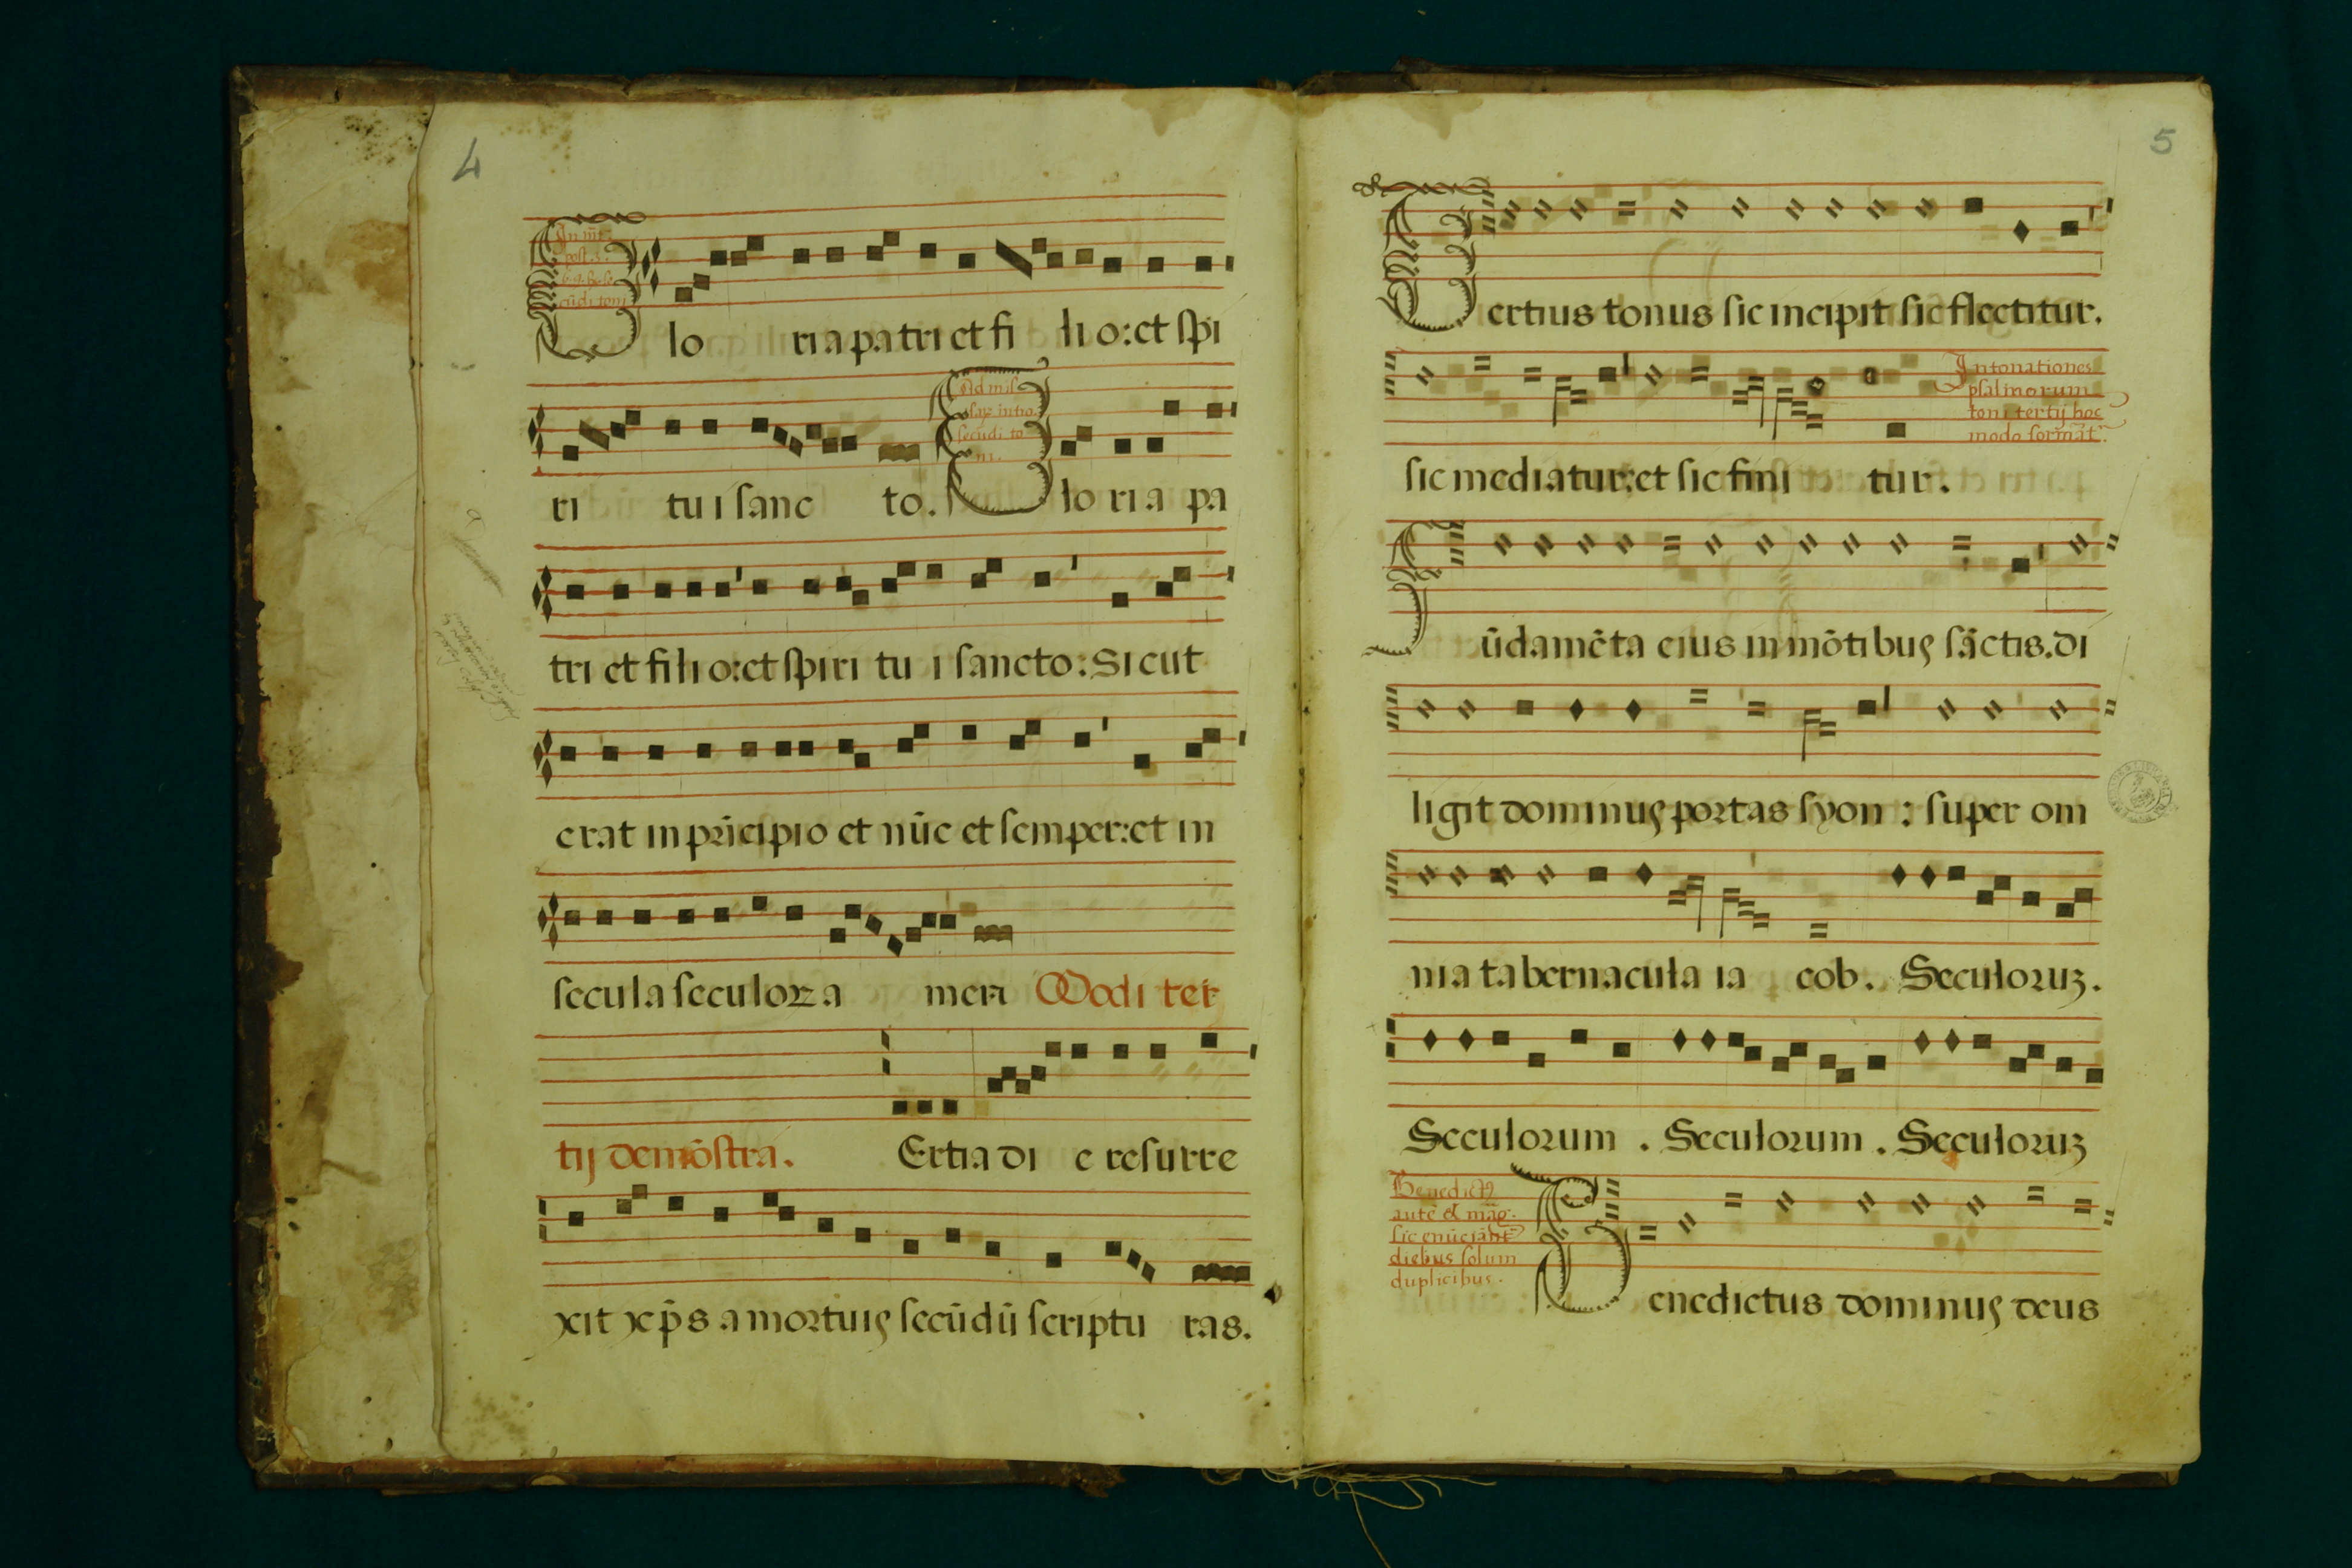 4
lo ria patri et fi li o: et spi
ri tu i sanc to. lo ri a pa
tri et fili o: et spiri tu i sancto: Sicut
erat in prĩcipio et nũc et semper: et in
secula seculoꝝ a men Modi ter
tij demõstra. Ertia di e resurre
xit xp̃s a mortuis secũdũ scriptu ras.
5
Tertius tonus sic incipit sic flectitur.
Intonationes
psalmorum
toni tertij hoc
modo format̃.
sic mediatur: et sic fini tur.
Fũdamẽta eius in mõtibus sãctis. di
ligit dominus portas syon : super om
nia tabernacula ia cob. Seculoruz.
Seculorum . Seculorum . Seculoruz
Benedictꝰ
autẽ et mag.
sic enũciãnt̃
diebus solum
duplicibus.
Benedictus dominus deus